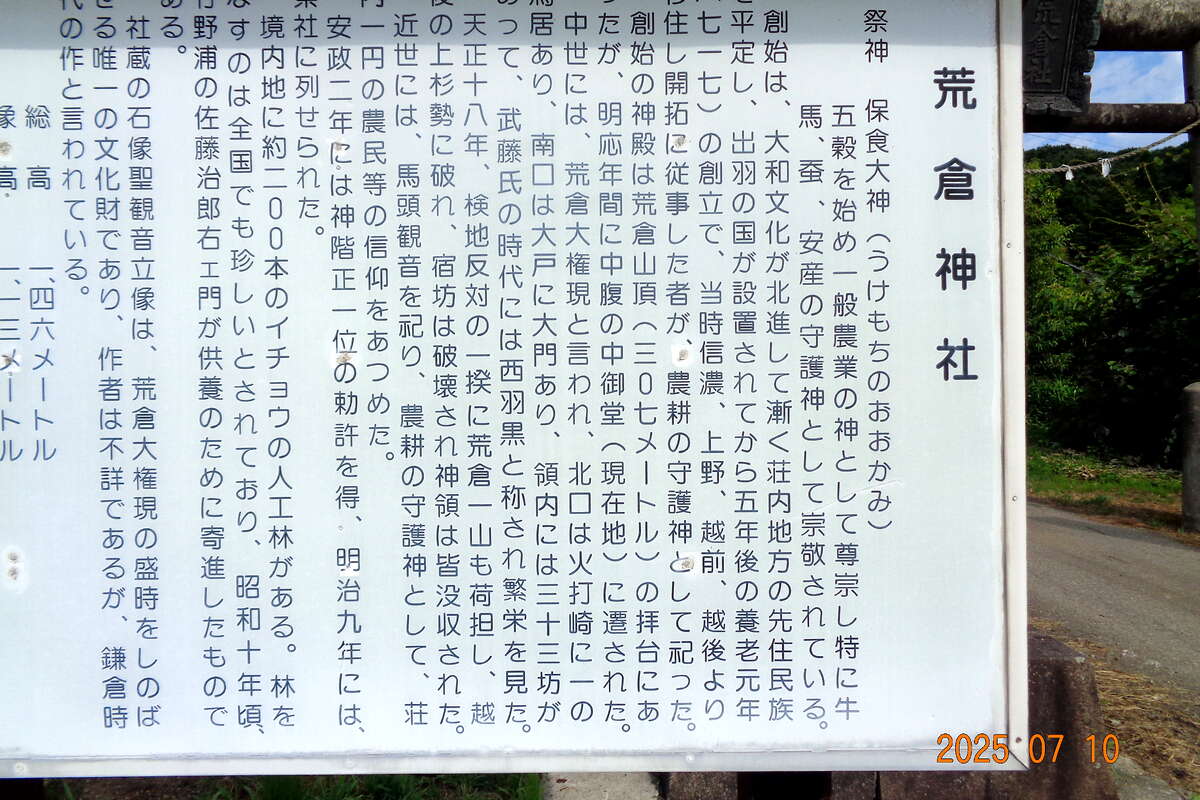 荒倉神社
祭神　保食大神（うけもちのおおかみ）
五穀を始め一般農業の神として尊崇し特に牛
馬、蚕、安産の守護神として崇敬されている。
創始は、大和文化が北進して漸く荘内地方の先住民族
を平定し、出羽の国が設置されてから五年後の養老元年
七一七）の創立で、当時信濃、上野、越前、越後より
移住し開拓に従事した者が、農耕の守護神として祀った。
創始の神殿は荒倉山頂（三〇七メートル）の拝台にあ
ったが、明応年間に中腹の中御堂（現在地）に遷された。
中世には、荒倉大権現と言われ、北口は火打崎に一の
鳥居あり、南口は大戸に大門あり、領内には三十三坊が
あって、武藤氏の時代には西羽黒と称され繁栄を見た。
天正十八年、検地反対の一揆に荒倉一山も荷担し、越
後の上杉勢に破れ、宿坊は破壊され神領は皆没収された。
近世には、馬頭観音を祀り、農耕の守護神として、荘
内一円の農民等の信仰をあつめた。
安政二年には神階正一位の勅許を得、明治九年には、
社に列せられた。
境内地に約二〇〇本のイチョウの人工林がある。林を
なすのは全国でも珍しいとされており、昭和十年頃、
野浦の佐藤治郎右エ門が供養のために寄進したもので
ある。
社蔵の石像聖観音立像は、荒倉大権現の盛時をしのば
せる唯一の文化財であり、作者は不詳であるが、鎌倉時
代の作と言われている。
総高　一、四六メートル
像高　一、一三メートル
2025 07 10